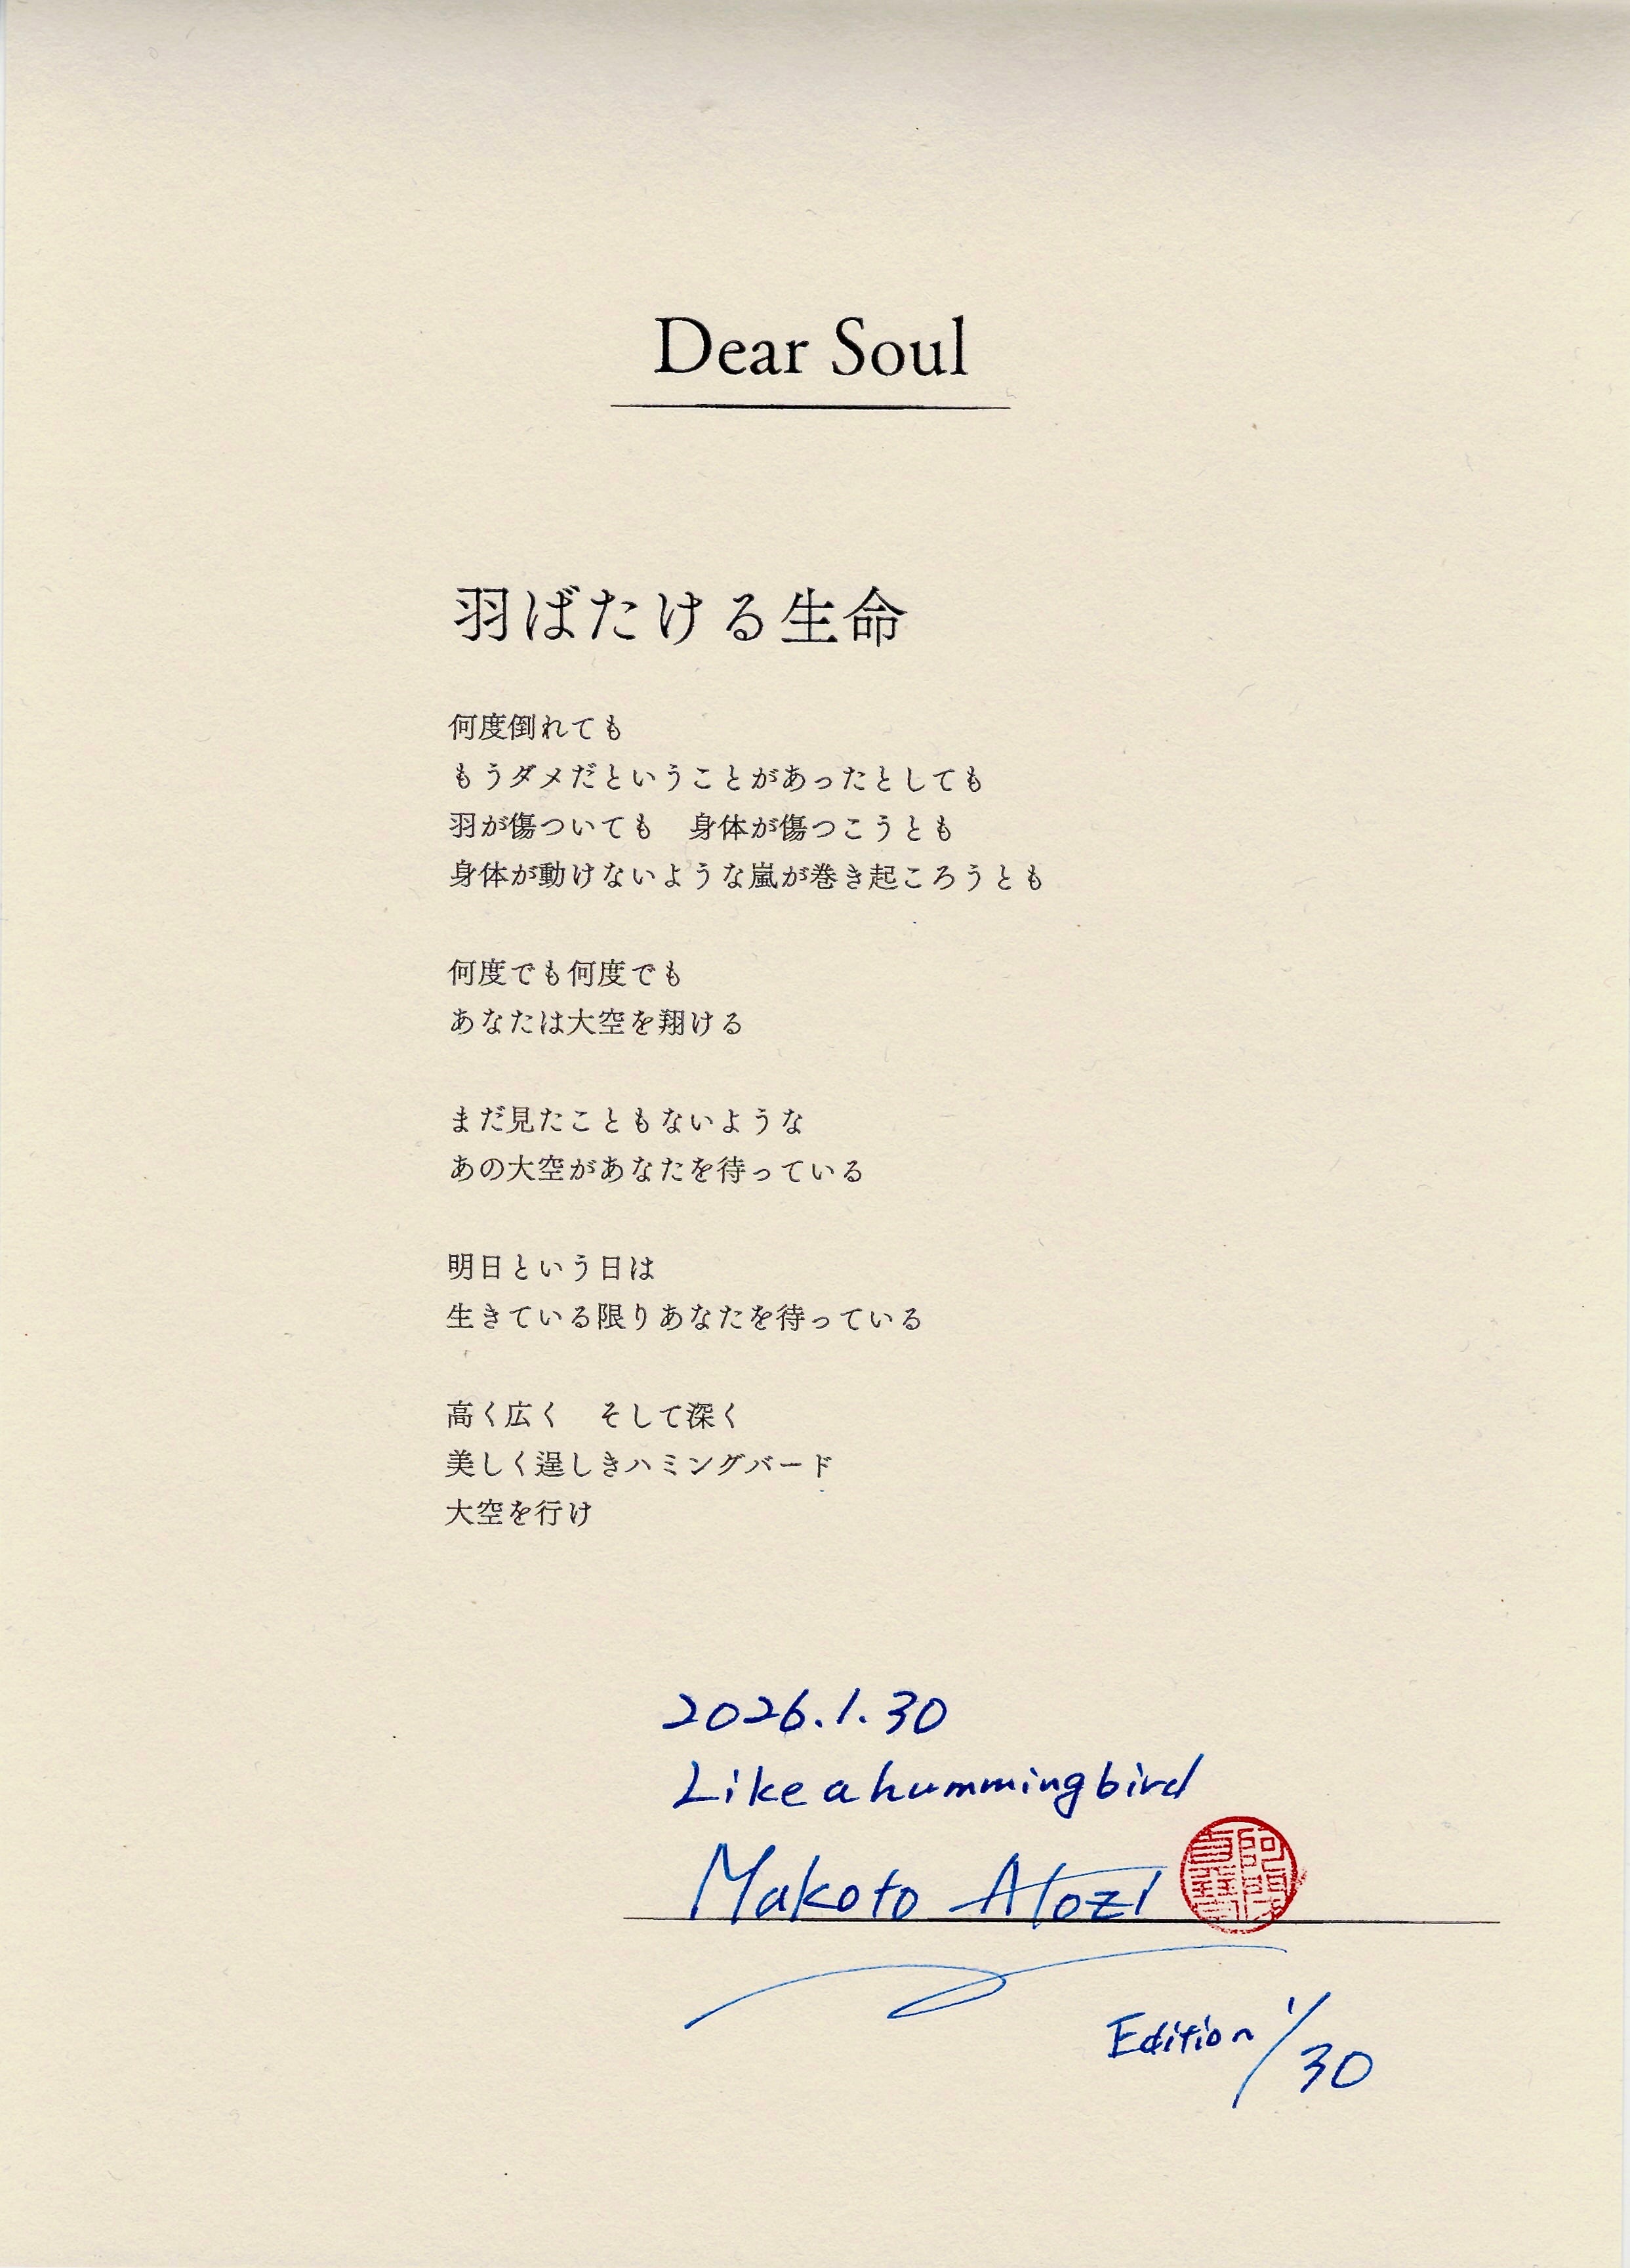 Dear Soul
羽ばたける生命
何度倒れても
もうダメだということがあったとしても
羽が傷ついても　身体が傷つこうとも
身体が動けないような嵐が巻き起ころうとも
何度でも何度でも
あなたは大空を翔ける
まだ見たこともないような
あの大空があなたを待っている
明日という日は
生きている限りあなたを待っている
高く広く　そして深く
美しく逞しきハミングバード
大空を行け
2026.1.30
Like a hummingbird
Makoto Atozi
Edition 1/30